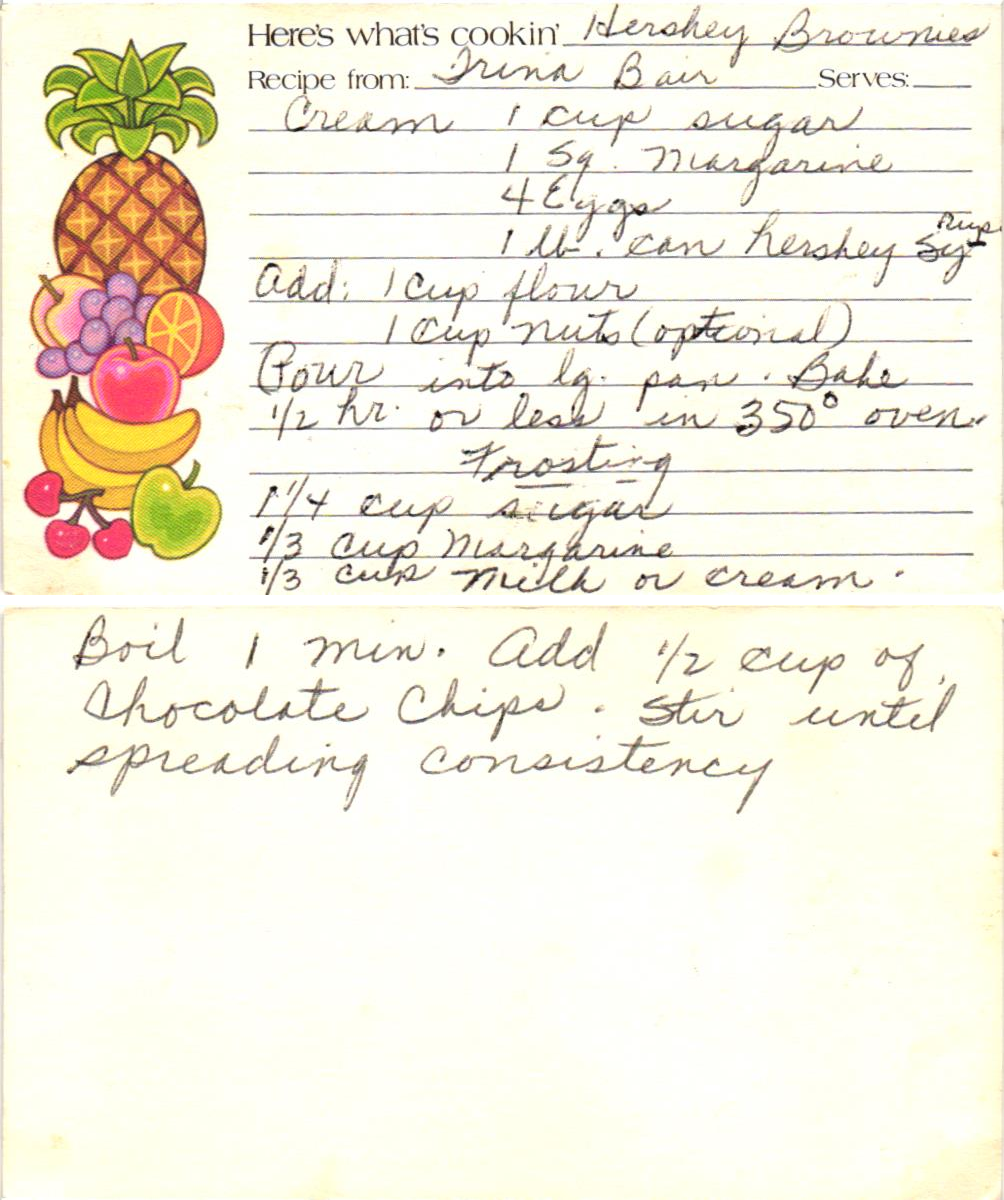 Here's what's cookin' Hershey Brownies
Recipe from: Trina Bair Serves:
Cream 1 cup sugar
1 Sq. Margarine
4 Eggs
1 lb. can hershey Syrup
Add: 1 cup flour
1 cup nuts (optional)
Pour into lg. pan. Bake
1/2 hr. or less in 350° oven.
Frosting
1 1/4 cup sugar
1/3 cup Margarine
1/3 cup Milk or cream.
Boil 1 min. Add 1/2 cup of
Chocolate Chips. Stir until
spreading consistency